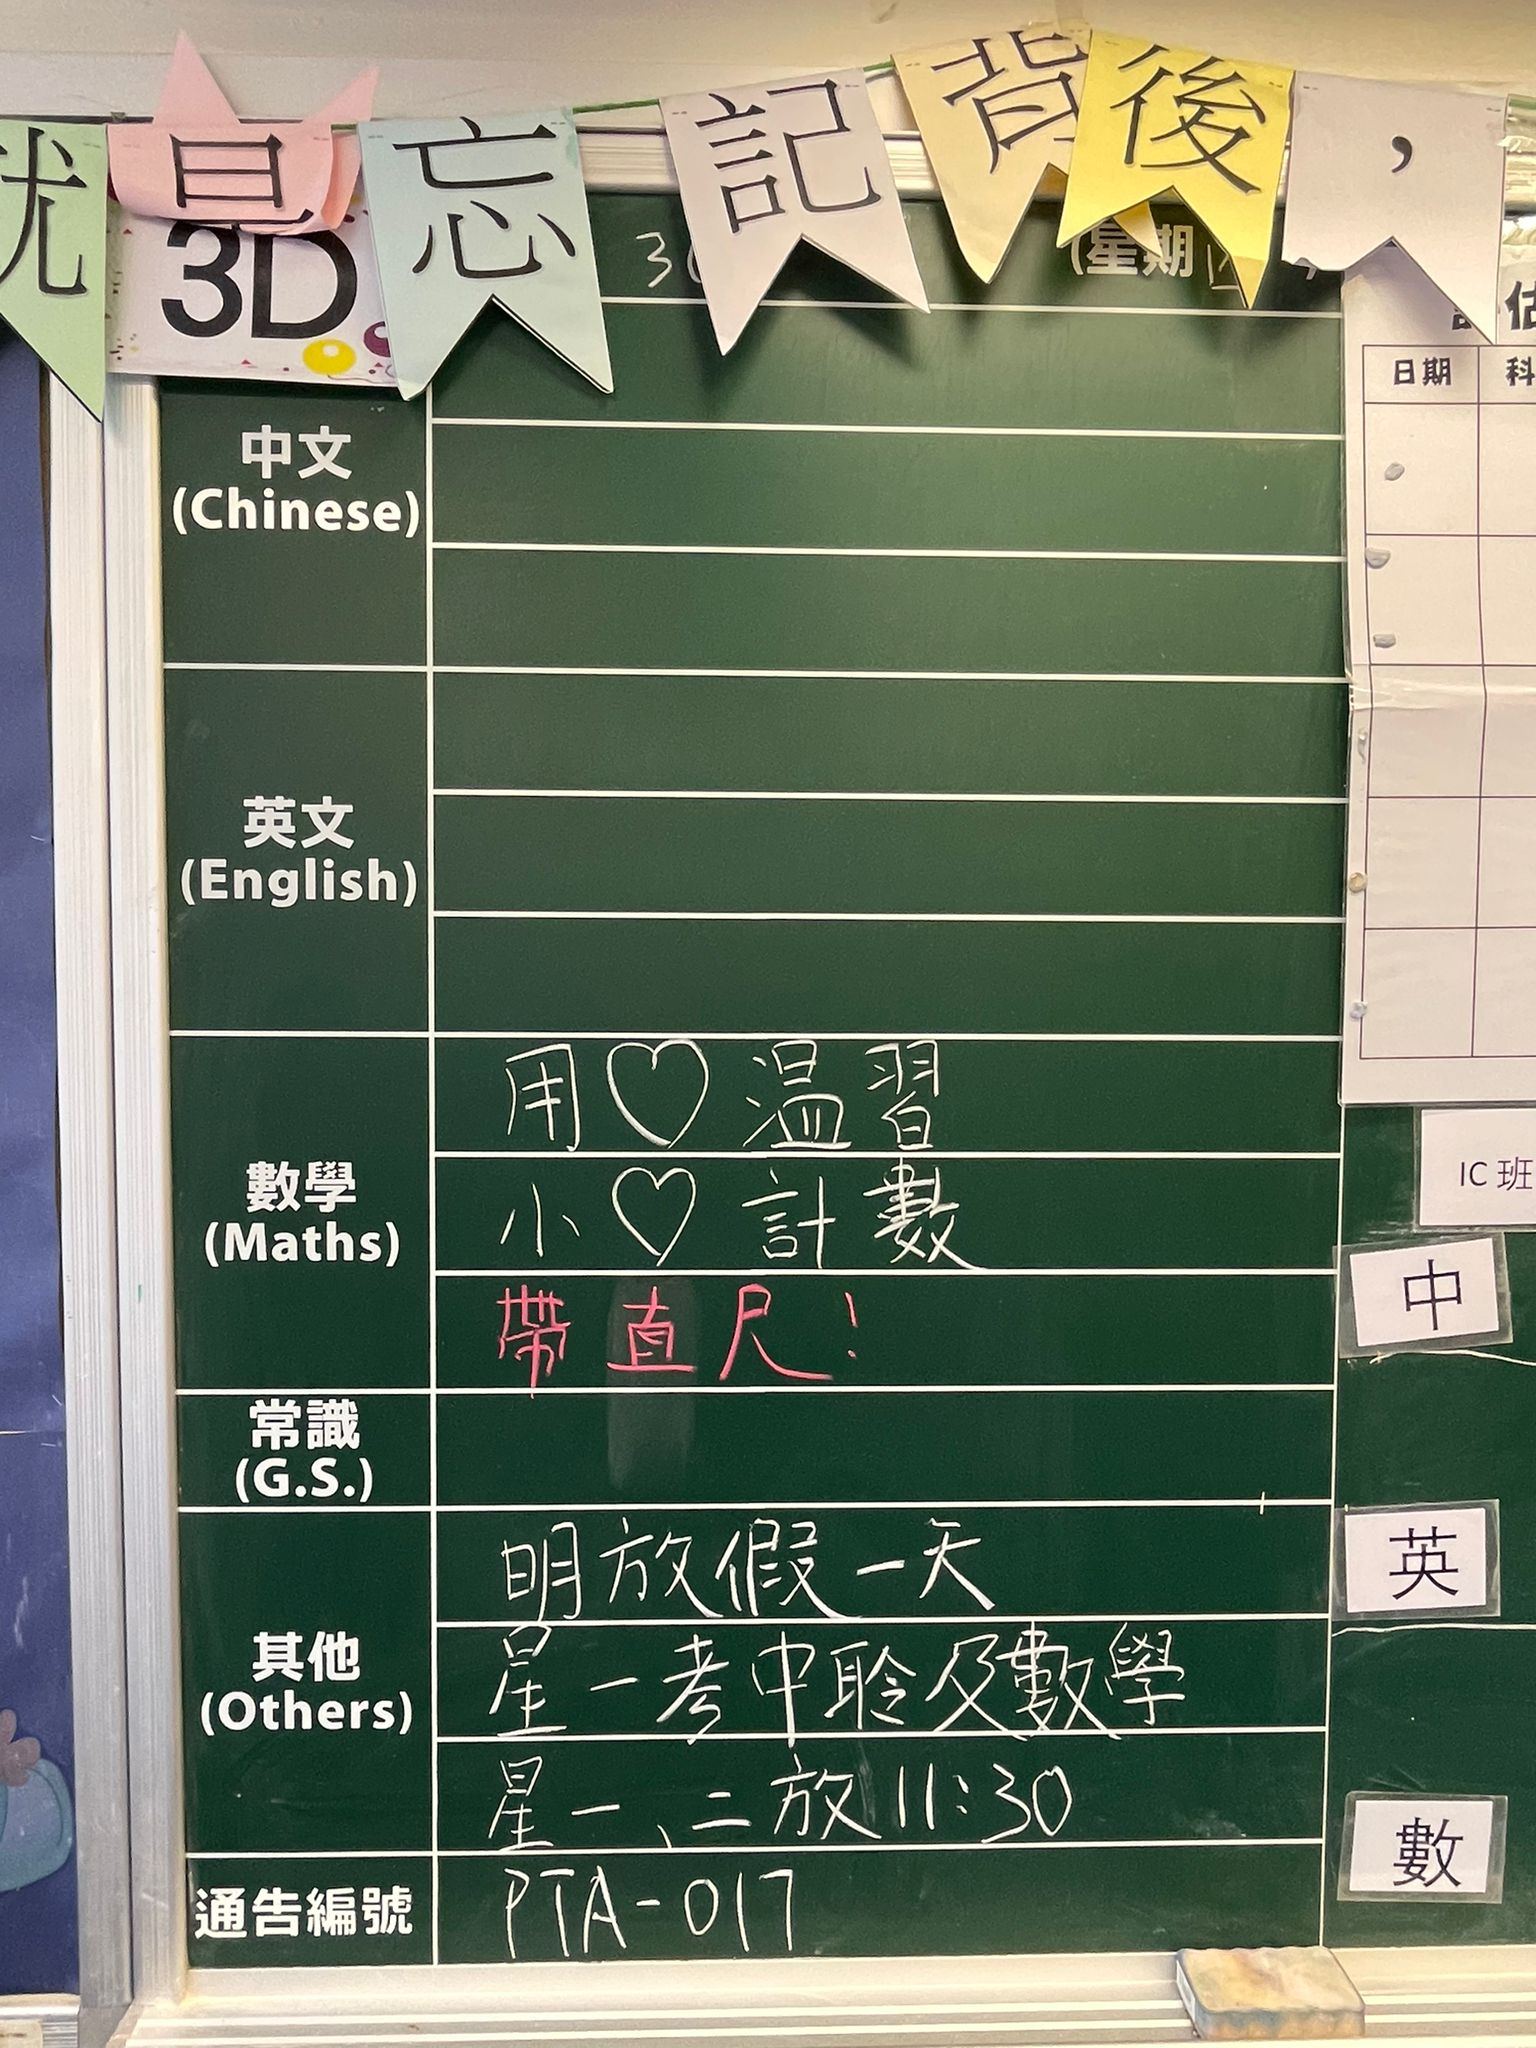 就是忘記背後，
3D
30
(星期四
日期 科
中文
(Chinese)
英文
(English)
數學
(Maths)
用♡溫習
小♡計數
帶直尺!
常識
(G.S.)
其他
(Others)
明放假一天
星一考中聆及數學
星一、二放11:30
通告編號
PTA-017
IC 班
中
英
數